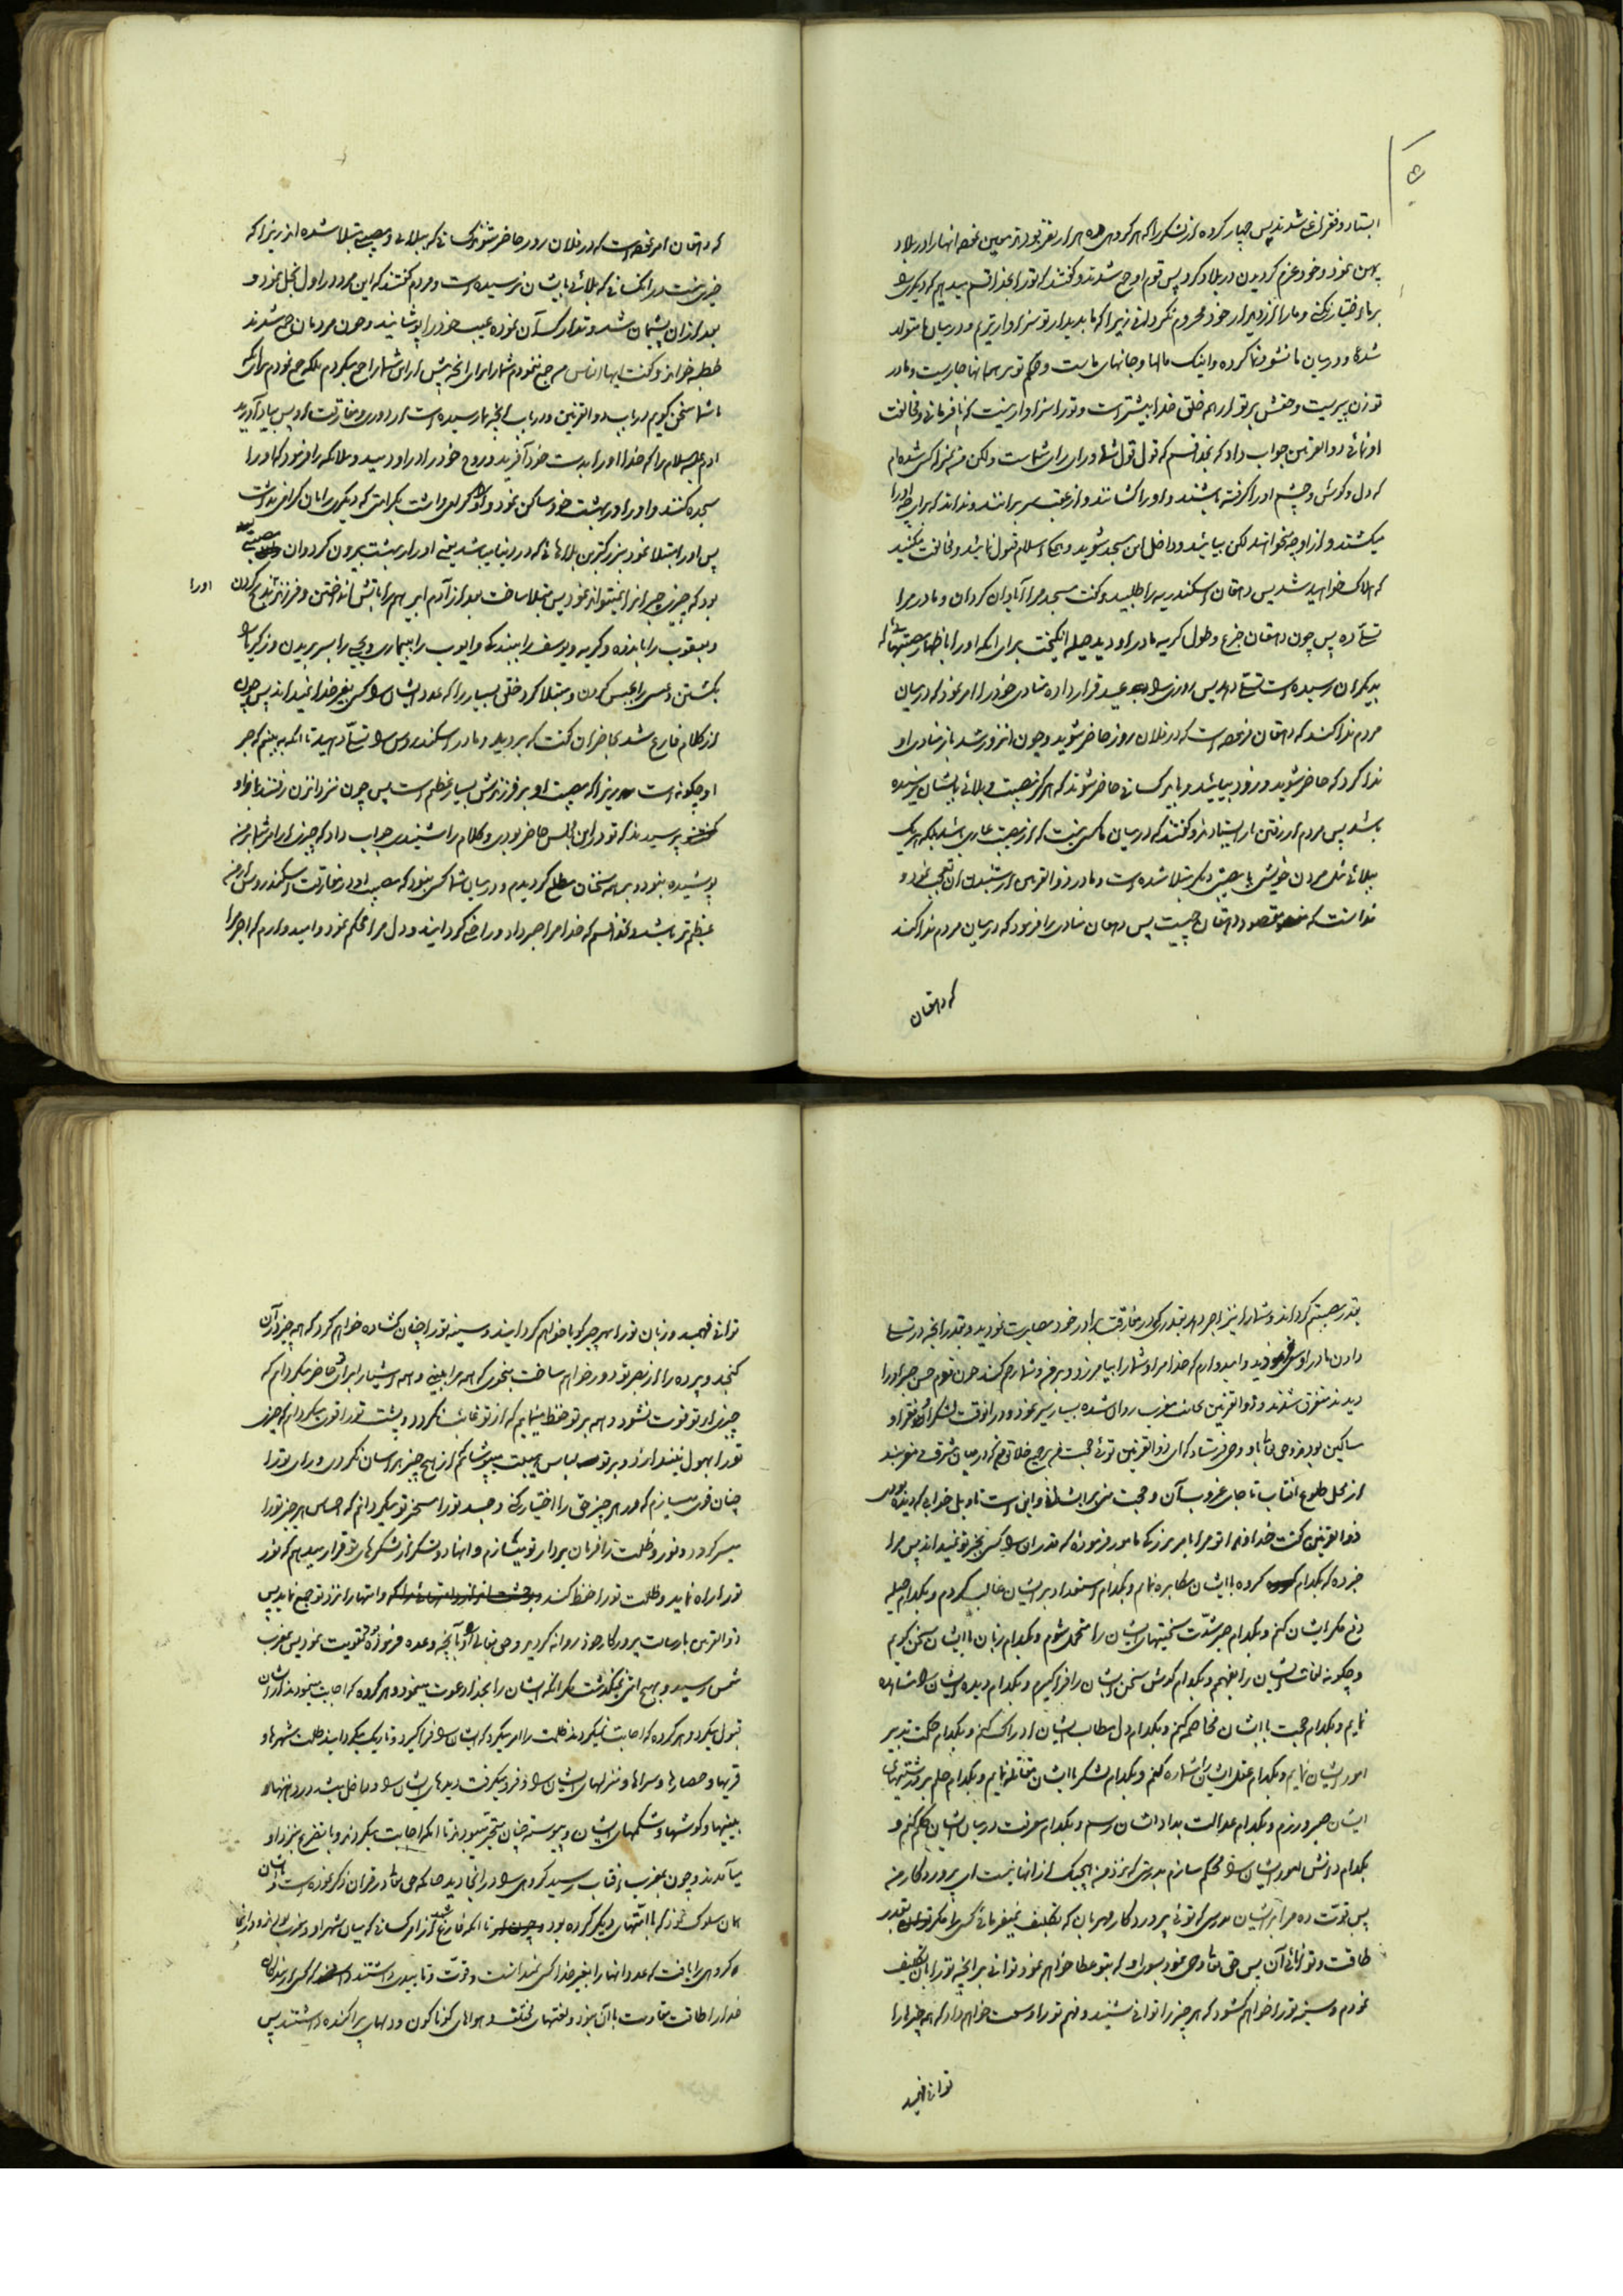 ۵
ایستاد و فقر فارغ شدند پس چهار کرده از لشکر را که هر گروهی ده هزار نفر بودند معین نمود انها را در بلاد
پهن نمود و خود عزم گردیدن در بلاد کرد پس قوم او جمع شدند و گفتند که تو را بخدا قسم میدهیم که دیگری را
بر ما اختیار نکنی و ما را از دیدار خود محروم نگردانی زیرا که ما بدیدار تو سزاوارتریم و در میان ما متولد
شده و در میان ما نشو و نما کرده و اینک مالها و جانهای ماست و حکم تو بر همه انها جاریست و مادر
تو زن پیریست و حقش بر تو از همه خلق خدا بیشتر است و تو را سزاوار نیست که نافرمانی و مخالفت
او نمائی ذو القرنین جواب داد که بخدا قسم که قول قول شما و رای رای شماست ولکن من بمنزله کسی شده‌ام
که دل و گوش و چشم او را گرفته باشند و او را کشانند و از عقب سر برانند و نداند که برای چه او را
میکشند و از او چه میخواهند لکن بیائید و داخل این مسجد شوید و همه اسلام قبول نمائید و مخالفت مکنید
که هلاک خواهید شد پس دهقان اسکندریه را طلبید و گفت مسجد مرا آبادان گردان و مادر مرا
تسلی ده پس چون دهقان جزع و طول گریه مادر او دید حیله انگیخت برای انکه او را باظهار مصیبتهائی که
بدیگران رسیده است تسلی دهد پس روزی را عید قرار داده منادی خود را امر نمود که در میان
مردم ندا کند که دهقان فرموده است که در فلان روز حاضر شوید و چون انروز شد باز منادی او
ندا کرد که حاضر شوید و زود بیائید و باید کسانی حاضر شوند که هرگز مصیبت و بلائی بایشان نرسیده
باشد پس مردم از رفتن باز ایستادند و گفتند که در میان ما کسی نیست که از مصیبت عاری باشد بلکه هر یک
ببلائی مثل مردن خویشی یا مصیبتی دیگر مبتلا شده است و مادر ذو القرنین از شنیدن ان تعجب نمود و
ندانست که مقصود دهقان چیست پس دهقان منادی را فرمود که در میان مردم ندا کند
که دهقان
که دهقان امر نموده است که در فلان روز حاضر شوند کسانی که ببلائی و مصیبتی مبتلا شده اند زیرا که
خیری نیست در انکسانی که بلائی بایشان نرسیده است و مردم گفتند که این مرد در اول بخل نمود و
بعد از ان پشیمان شد و تدارک آن نموده عیب خود را پوشانید و چون مردمان جمع شدند
خطبه خواند و گفت ایها الناس من جمع ننمودم شما را برای انچه پیش از این شما را جمع میکردم بلکه جمع نمودم برای انکه
با شما سخن گویم در باب ذو القرنین و در باب انچه بما رسیده است از دوری و مفارقت او پس بیاد آورید
ادم علیه السلام را که خدا او را بدست خود آفرید و روح خود را در او دمید و ملائکه را فرمود که او را
سجده کنند و او را در بهشت خود ساکن نمود و او را گرامی داشت بکرامتی که دیگری را بان گرامی نداشت
پس او را مبتلا نمود ببزرگترین بلاهائی که در دنیا میباشد یعنی او را از بهشت بیرون کرد و ان مصیبتی
بود که چیزی جبر انرا نمیتواند نمود پس مبتلا ساخت بعد از آدم ابراهیم را باتش انداختن و فرزندش بذبح کردن
و یعقوب را باندوه و گریه و یوسف را ببندگی و ایوب را ببیماری و یحیی را بسر بریدن و زکریا را
بکشتن و عیسی را بحبس کردن و مبتلا کرد خلق بسیار را که عدد ایشان را کسی بغیر خدا نمیداند پس چون
از کلام فارغ شد بحاضران گفت که بروید و مادر اسکندروس را تسلی دهید تا انکه به بینم که صبر
او چگونه است زیرا که مصیبت او بر فرزندش بسیار عظیم است پس چون نزد انزن رفتند باو
پرسیدند که تو در این مجلس حاضر بودی و کلام را شنیدی جواب داد که چیزی از امر شما بر من
پوشیده نبود و بر همه سخنان مطلع گردیدم و در میان شما کسی نبود که مصیبت او در مفارقت اسکندروس از من
عظیم‌تر باشد و بخدا قسم که خدا مرا صبر داد و راضی گردانید و دل مرا محکم نمود و امیدوارم که اجر مرا
او را
بقدر مصیبتم گرداند و شما را نیز اجر دهد بقدری که در مفارقت برادر خود مصابرت نمودید و بقدر انچه در تسلی
دادن مادر او سعی نمودید و امیدوارم که خدا مرا و شما را بیامرزد و بر من و شما رحم کند چون قوم حسن صبر او را
دیدند متفرق شدند و ذو القرنین بجانب مغرب روان شده بسیار سیر نمود و در انوقت لشکر او فقرا و
مساکین بودند و حق تعالی باو وحی فرستاد که ای ذو القرنین توئی حجت من بر جمیع خلائق که در میان مشرق و مغربند
از محل طلوع افتاب تا جای غروب آن و حجت منی بر ایشان و این است تاویل خوابی که دیده بودی
ذو القرنین گفت خداوندا تو مرا بامر بزرگی مامور فرموده که قدر ان را کسی بجز تو نمیداند پس مرا
خبر ده که بکدام گروه با ایشان مکابره نمایم و بکدام استعداد بر ایشان غالب گردم و بکدام حیله
دفع مکر ایشان کنم و بکدام صبر شدت سختیهای ایشان را متحمل شوم و بکدام زبان با ایشان سخن گویم
و چگونه لغات ایشان را بفهمم و بکدام گوش سخن ایشان را فرا گیرم و بکدام دیده ایشان را مشاهده
نمایم و بکدام حجت با ایشان مخاصمه کنم و بکدام دل مطالب ایشان ادراک کنم و بکدام حکمت تدبیر
امور ایشان نمایم و بکدام عقل ایشان را شماره کنم و بکدام لشکر با ایشان مقاتله نمایم و بکدام حلم بر درشتیهای
ایشان صبر ورزم و بکدام عدالت بداد ایشان رسم و بکدام معرفت در میان ایشان حکم کنم و
بکدام دانش امور ایشان را محکم سازم بدرستی که نزد من هیچیک از انها نیست ای پروردگار من
پس قوت ده مرا بر ایشان بدرستی که توئی پروردگار مهربان که تکلیف نمیفرمائی کسی را مگر بقدر
طاقت و توانائی آن پس حق تعالی وحی نمود بسوی او که بتو عطا خواهم نمود توانائی بر انچه تو را بان تکلیف
نمودم و سینه تو را خواهم گشود که هر چیز را توانی شنید و فهم تو را وسعت خواهم داد که همه چیز را
توانی فهمید
توانی فهمید و زبان تو را بهر چیز گویا خواهم گردانید و سینه تو را چنان گشاده خواهم کرد که همه چیز در آن
گنجد و پرده را از بصر تو دور خواهم ساخت بنحوی که همه را ببینی و همه اشیا را برای تو حاضر میگردانم که
چیزی از تو فوت نشود و همه بر تو حفظ مینمایم که از تو غائب نگردد و پشت تو را قوی میگردانم که چیزی
تو را بهول نیندازد و بر تو لباس هیبت میپوشانم که از هیچ چیز هراسان نگردی و رای تو را
چنان قوی میسازم که در هر چیز حق را اختیار کنی و جسد تو را مسخر تو میگردانم که احساس هر چیز تو را
میسر گردد و نور و ظلمت را فرمان بردار تو میسازم و انها دو لشکر از لشکرهای تو قرار میدهم که نور
تو را راه نماید و ظلمت تو را حفظ کند و امتها را نزد تو جمع نماید پس
ذو القرنین بارسالت پروردگار خود روانه گردید و حق تعالی او را بانچه وعده فرموده بود تقویت نمود پس بمغرب
شمس رسید و بهیچ امتی نمیگذشت مگر انکه ایشان را بخدا دعوت مینمود و هر گروه که اجابت مینمودند از ایشان
قبول میکرد و هر گروه که اجابت نمیکردند ظلمت را امر میکرد که ایشان را فرا گیرد و تاریک میگردانید ظلمت شهرها و
قریها و حصارها و سراها و منزلهای ایشان را و فرو میگرفت دیدهای ایشان را و داخل میشد در دهنها و
بینیها و گوشها و شکمهای ایشان و پیوسته چنان متحیر میبودند تا انکه اجابت میکردند و با تضرع نزد او
میآمدند و چون بمغرب افتاب رسید گروهی را در انجا دید چنانکه حق تعالی در قران ذکر نموده است و با ایشان
همان سلوک نمود که با امتهای دیگر کرده بود تا انکه فارغ شد از امر کسانی که میان شهر او و مغرب بودند و در انجا
گروهی را یافت که عدد انها را بغیر خدا کسی نمیدانست و قوت و تابیدی داشتند که کسی بغیر از
خدا را طاقت مقاومت با آن نبود و لغتهای مختلف و هواهای گوناگون و دلهای پراکنده داشتند پس